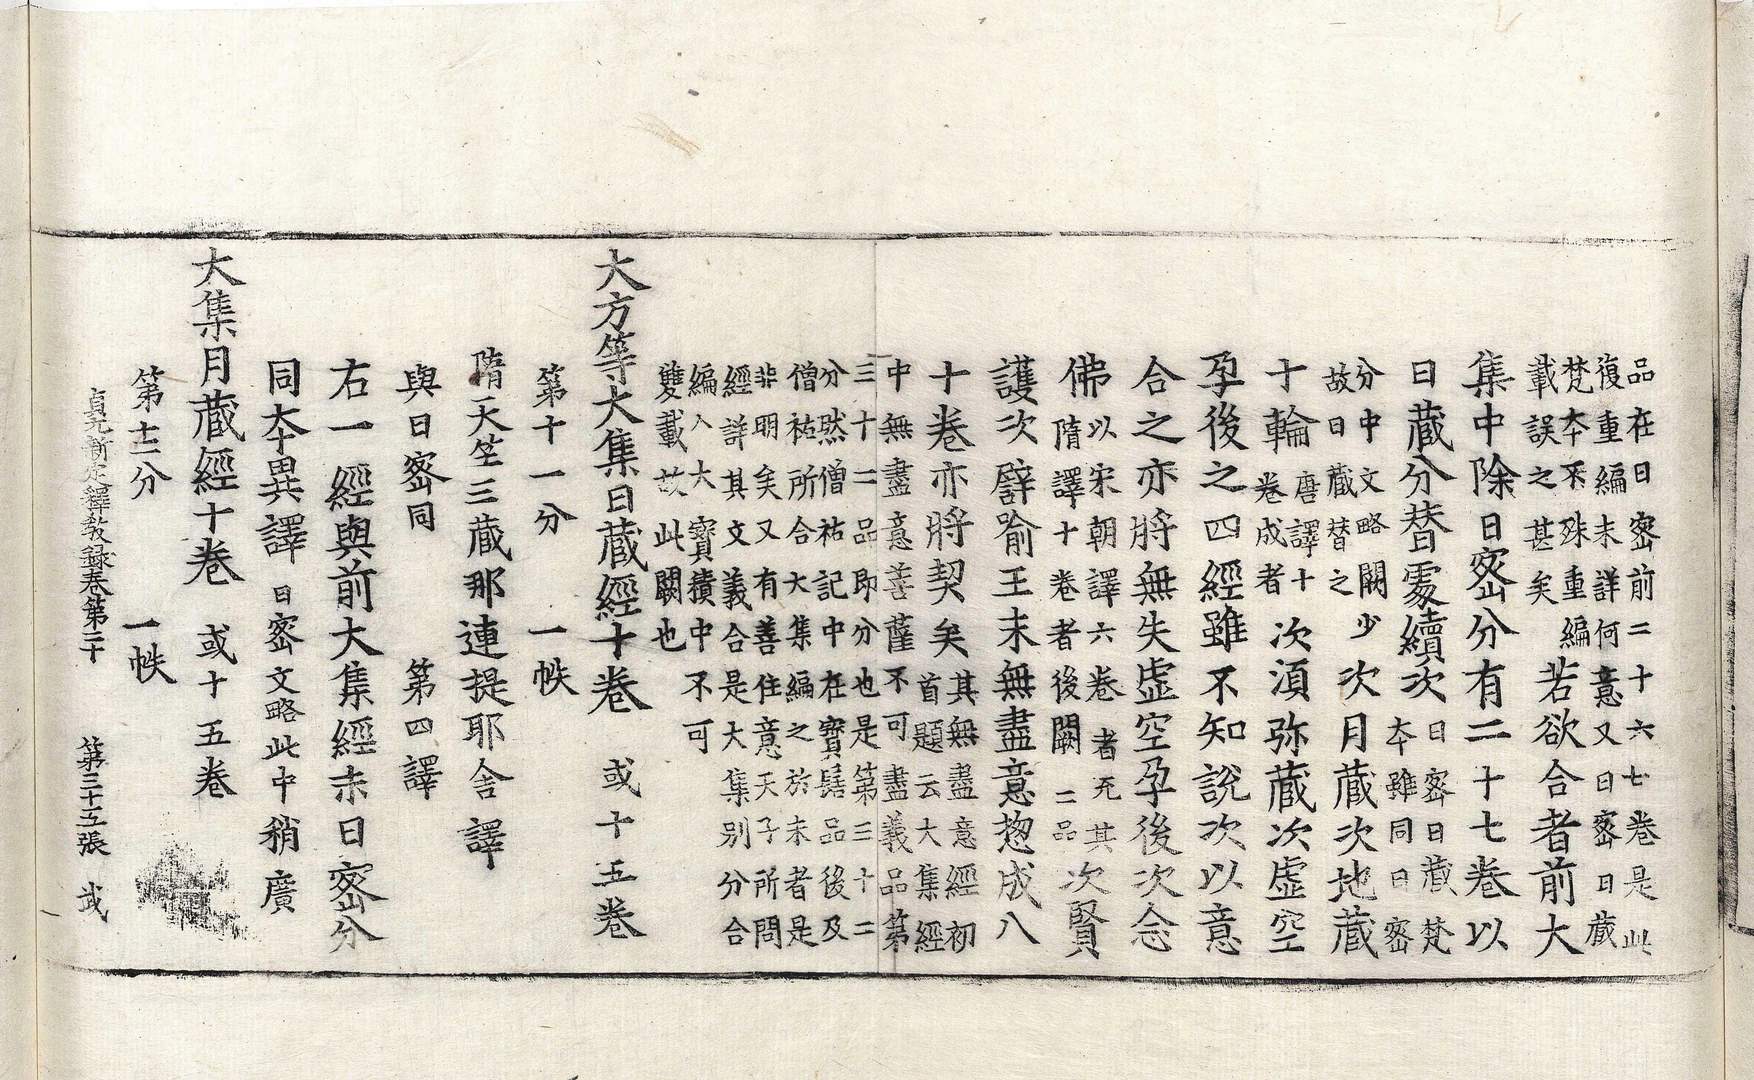 品在日密前二十六七卷是此
復重編末詳何意又日密日藏
梵夲不殊重編
載誤之甚矣
若欲合者前大
集中除日密分有二十七卷以
日藏分替處續次
日密日藏梵
夲雖同日密
分中文略闕少
故日藏替之
次月藏次地藏
十輪
唐譯十
卷成者
次湏弥藏次虛空
孕後之四經雖不知說次以意
合之亦將無失虛空孕後次念
佛
以宋朝譯六卷者充其
隋譯十卷者後闕二品
次賢
護次譬喻王末無盡意惣成八
十卷亦將契矣
其無盡意經初
首題云大集經
中無盡意菩薩不可盡義品第
三十二品即分也是第三十二
分然僧祐記中在寶髻品後及
僧祐所合大集編之於末者是
非明矣又有善住意天子所問
經詳其文義合是大集別分合
編入大寶積中不可
雙載故此闕也
大方等大集日藏經十卷 或十五卷
第十一分 一帙
隋天竺三藏那連提耶舍譯
與日密同 第四譯
右一經與前大集經末日密分
同夲異譯 日密文略此中稍廣
大集月藏經十卷 或十五卷
第十二分 一帙
貞元新定釋教録卷第二十 第三十五張 武